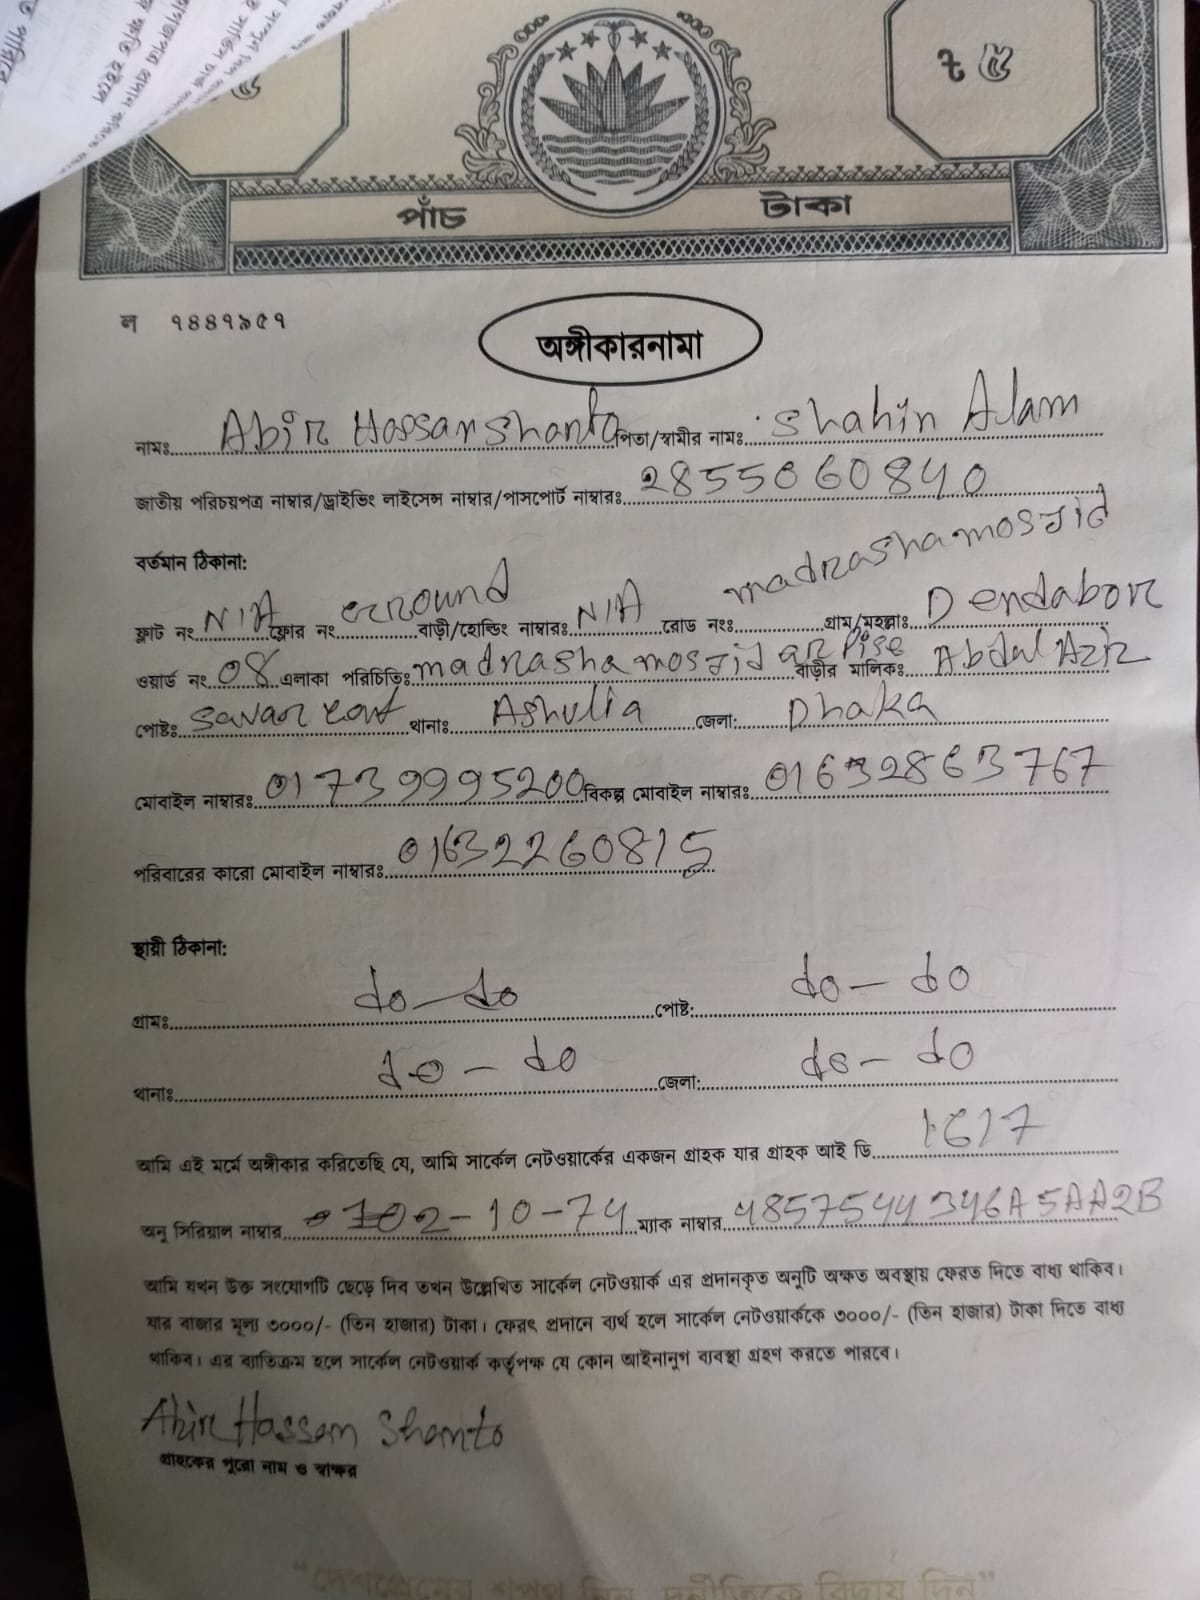 ৳ ৫
পাঁচ টাকা
ন ৭৪৪৭৯৫৭
অঙ্গীকারনামা
নামঃ Abir Hossan Shanto পিতা/স্বামীর নামঃ Shahin Alam
জাতীয় পরিচয়পত্র নাম্বার/ড্রাইভিং লাইসেন্স নাম্বার/পাসপোর্ট নাম্বারঃ 2855060840
বর্তমান ঠিকানা:
ফ্লাট নং N/A ফ্লোর নং ground বাড়ী/হোল্ডিং নাম্বারঃ N/A রোড নংঃ madrasha mosjid গ্রাম/মহল্লাঃ Dendabor
ওয়ার্ড নং 08 এলাকা পরিচিতিঃ madrasha mosjid বাড়ীর মালিকঃ Abdul Aziz
পোষ্টঃ Savar থানাঃ Ashulia জেলা: Dhaka
মোবাইল নাম্বারঃ 01739995200 বিকল্প মোবাইল নাম্বারঃ 01632863767
পরিবারের কারো মোবাইল নাম্বারঃ 01632260815
স্থায়ী ঠিকানা:
গ্রামঃ do - do পোষ্ট: do - do
থানাঃ do - do জেলা: do - do
আমি এই মর্মে অঙ্গীকার করিতেছি যে, আমি সার্কেল নেটওয়ার্কের একজন গ্রাহক যার গ্রাহক আই ডি 1617
অনু সিরিয়াল নাম্বার 102-10-74 ম্যাক নাম্বার 48575444346A5AA2B
আমি যখন উক্ত সংযোগটি ছেড়ে দিব তখন উল্লেখিত সার্কেল নেটওয়ার্ক এর প্রদানকৃত অনুটি অক্ষত অবস্থায় ফেরত দিতে বাধ্য থাকিব।
যার বাজার মূল্য ৩০০০/- (তিন হাজার) টাকা। ফেরৎ প্রদানে ব্যর্থ হলে সার্কেল নেটওয়ার্ককে ৩০০০/- (তিন হাজার) টাকা দিতে বাধ্য
থাকিব। এর ব্যতিক্রম হলে সার্কেল নেটওয়ার্ক কর্তৃপক্ষ যে কোন আইনানুগ ব্যবস্থা গ্রহণ করতে পারবে।
Abir Hassan Shanto
গ্রাহকের পুরো নাম ও স্বাক্ষর
"দেশপ্রেমের শপথ নিন, দুর্নীতিকে বিদায় দিন"